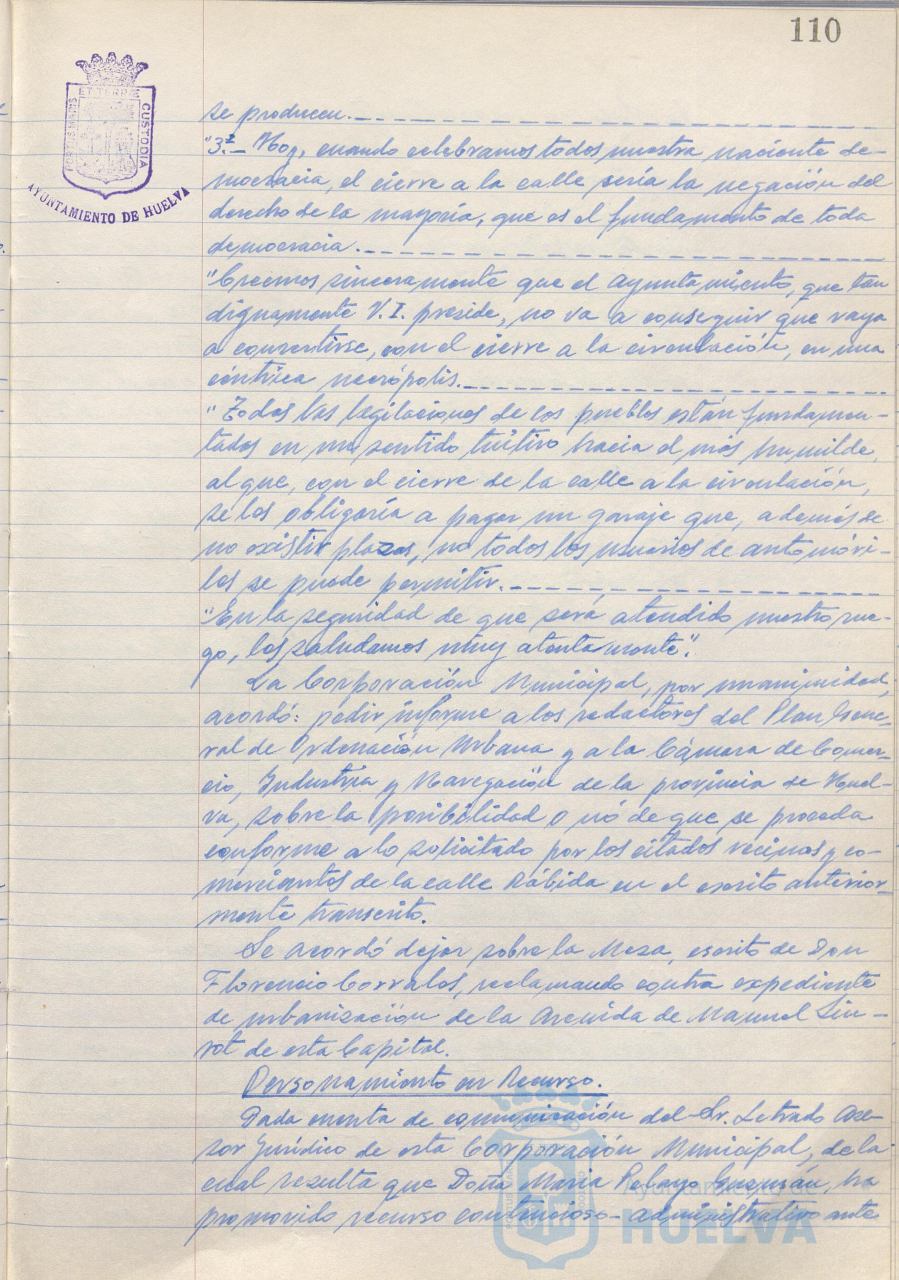 110
PORTUS MARIS
ET TERRÆ
CUSTODIA
AYUNTAMIENTO DE HUELVA
se producen.
"3ª.- Hoy, cuando celebramos todos nuestra naciente de-
mocracia, el cierre a la calle sería la negación del
derecho de la mayoría, que es el fundamento de toda
democracia.
"Creemos sinceramente que el Ayuntamiento, que tan
dignamente V.I. preside, no va a conseguir que vaya
a convertirse, con el cierre a la circulación, en una
céntrica necrópolis.
"Todas las legilaciones de los pueblos están fundamen-
tadas en un sentido tuitivo hacia el más humilde,
al que, con el cierre de la calle a la circulación,
se los obligaría a pagar un garaje que, además de
no existir plazas, no todos los usuarios de automóvi-
les se puede permitir.
"En la seguridad de que será atendido nuestro rue-
go, los saludamos muy atentamente".
La Corporación Municipal, por unanimidad,
acordó: pedir informe a los redactores del Plan Gene-
ral de Ordenación Urbana y a la Cámara de Comer-
cio, Industria y Navegación de la provincia de Huel-
va, sobre la posibilidad o nó de que se proceda
conforme a lo solicitado por los citados vecinos y co-
merciantes de la calle Rábida en el escrito anterior-
mente transcrito.
Se acordó dejar sobre la Mesa, escrito de Don
Florencio Corrales, reclamando contra expediente
de urbanización de la Avenida de Manuel Siu-
rot de esta Capital.
Personamiento en Recurso.
Dada cuenta de comunicación del Sr. Letrado Ase-
sor Jurídico de esta Corporación Municipal, de la
cual resulta que Doña María Pelayo Guzmán, ha
promovido recurso contencioso-administrativo ante
Ayuntamiento de
HUELVA